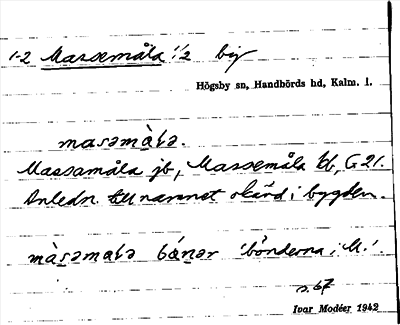 1-2 Massemåla 1/2 by
Högsby sn, Handbörds hd, Kalm. l.
masəmàlə.
Massamåla jb, Massemåla kb, G 21.
Anledn. till namnet okänd i bygden.
màsəmalə bónər 'bönderna i M.'.
s. 67
Ivar Modéer 1942